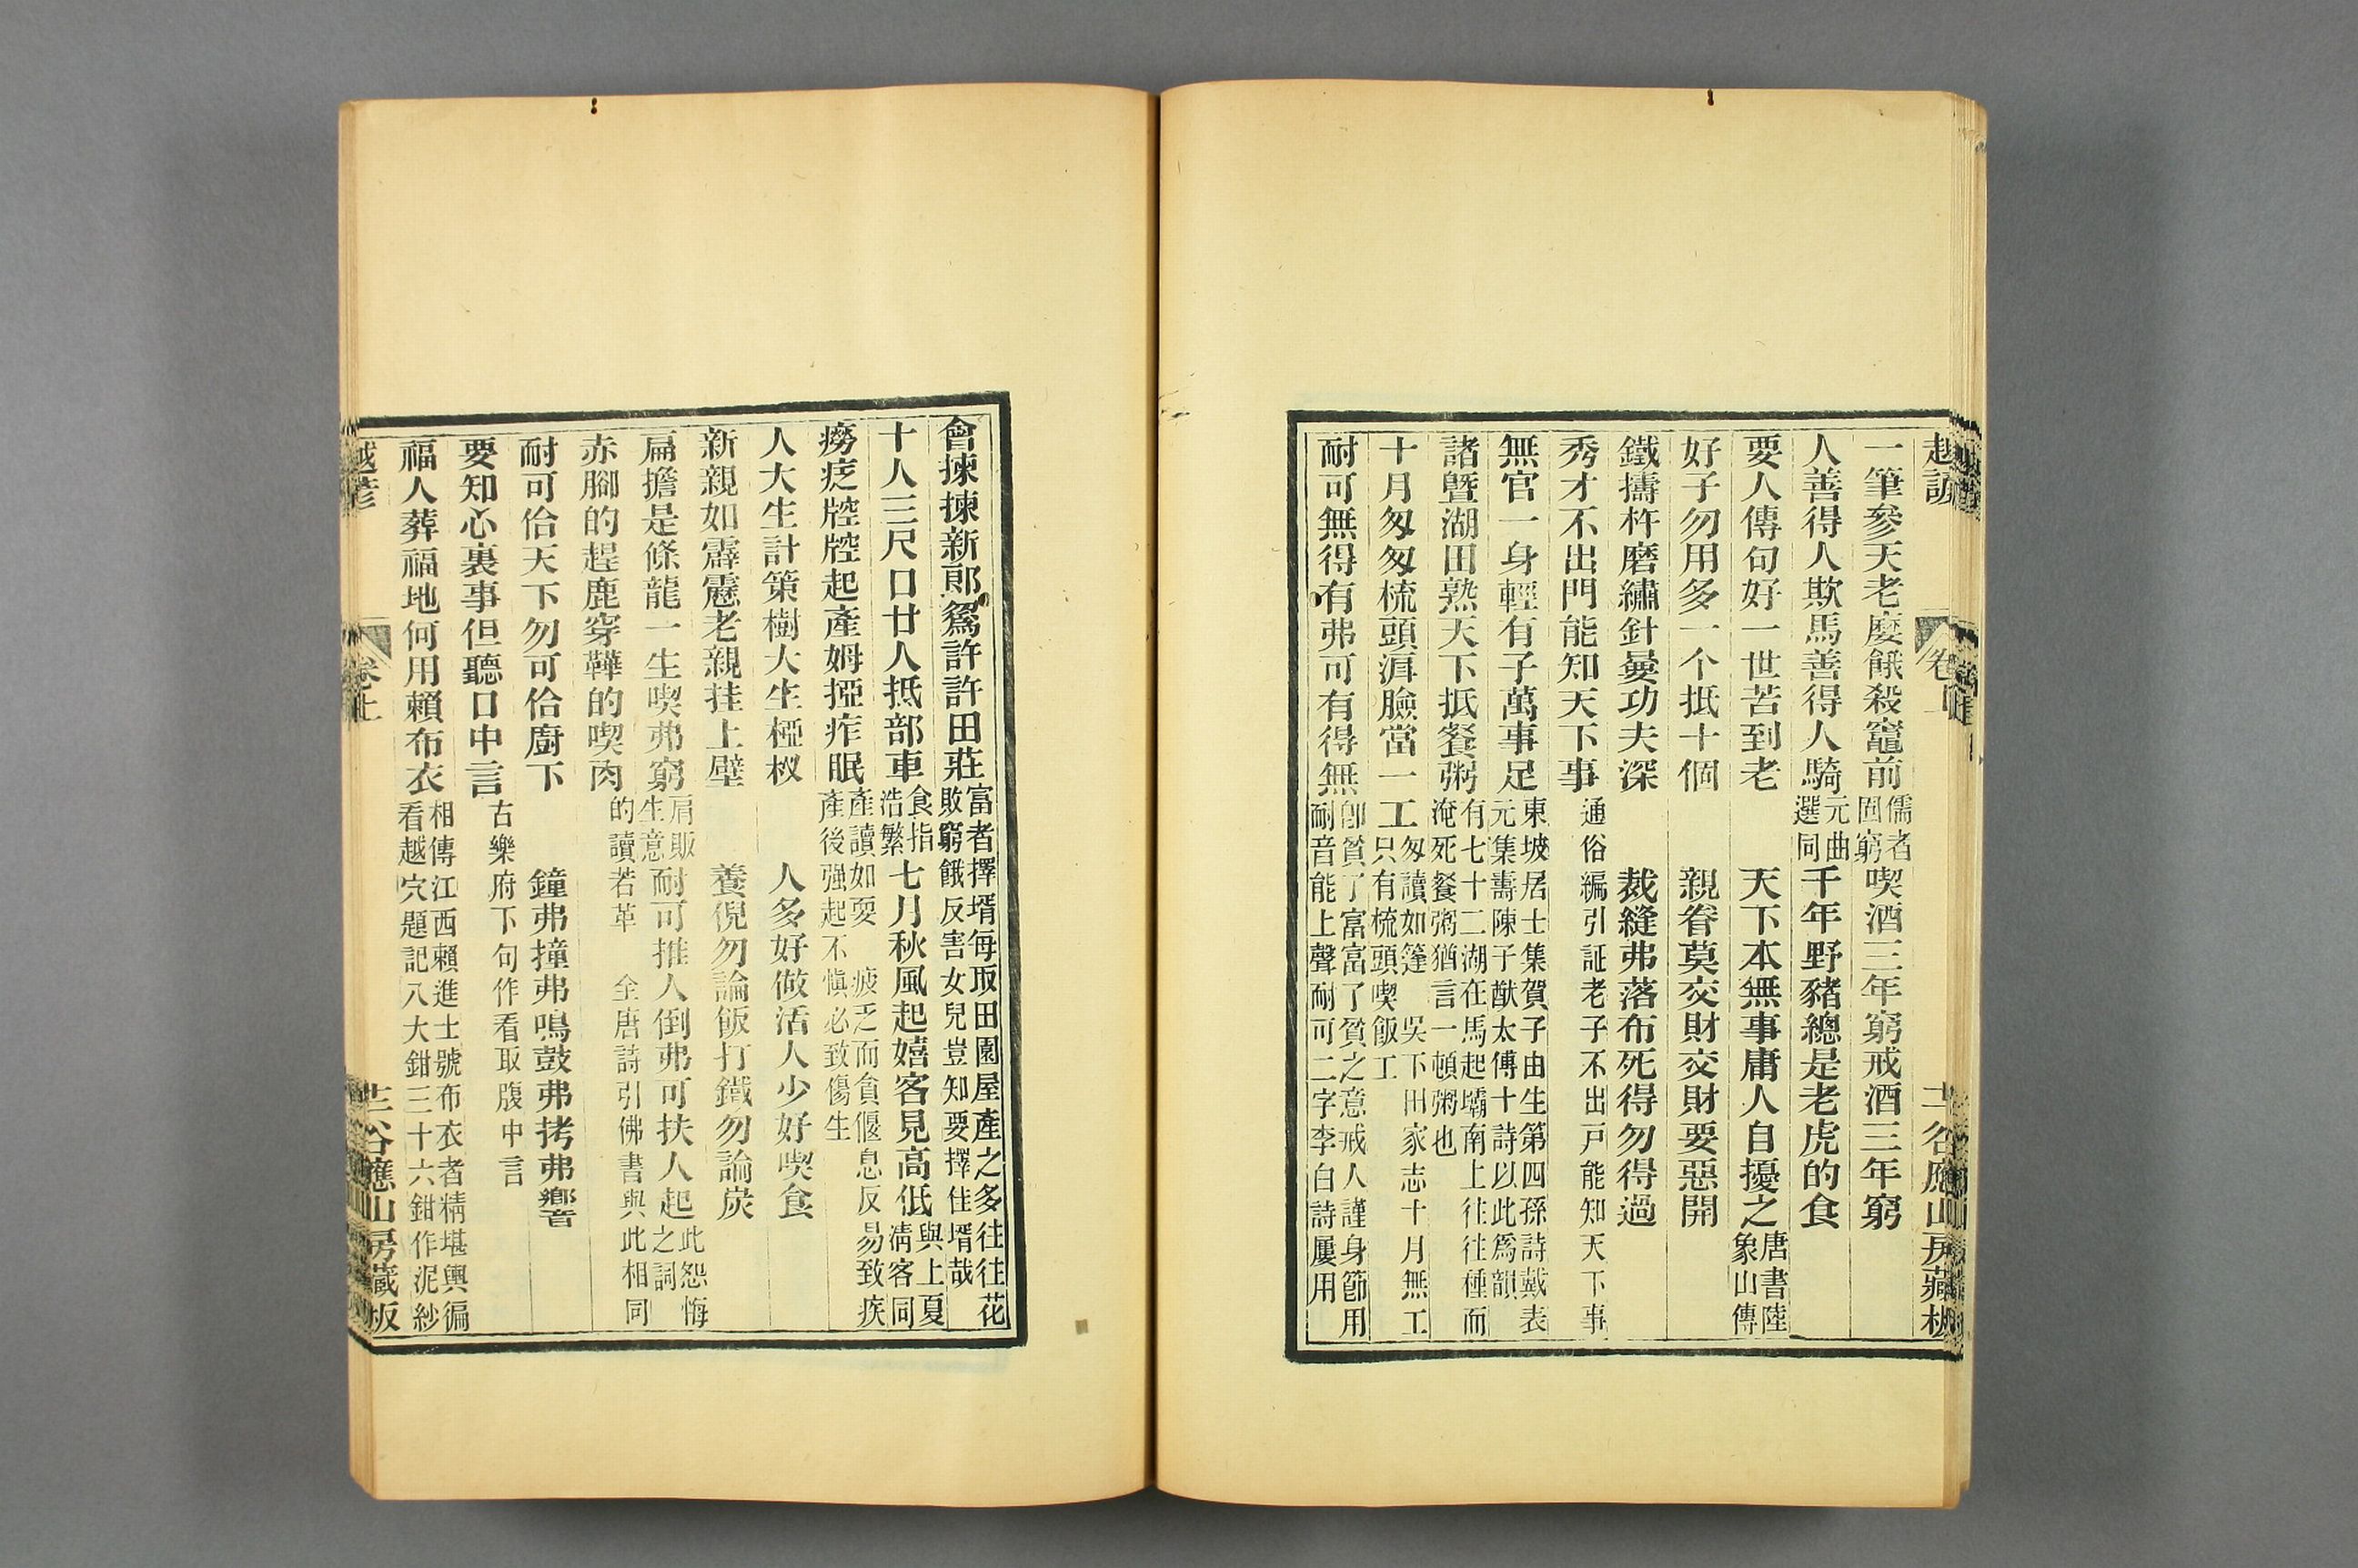 越諺 卷上 谷應山房藏板
一筆參天老麼餓殺竈前 儒者固窮 喫酒三年窮戒酒三年窮
人善得人欺馬善得人騎 元曲選同 千年野豬總是老虎的食
要人傳句好一世苦到老 天下本無事庸人自擾之 唐書陸象山傳
好子勿用多一个抵十個 親眷莫交財交財要惡開
鐵擣杵磨繡針曑功夫深 裁縫弗落布死得勿得過
秀才不出門能知天下事 通俗編引証老子不出戸能知天下事
無官一身輕有子萬事足 東坡居士集賀子由生第四孫詩戴表元集壽陳子猷太傅十詩以此爲韻
諸曁湖田熟天下抵餐粥 有七十二湖在馬起壩南上往往種而淹死餐粥猶言一頓粥也
十月匆匆梳頭洱臉當一工 匆讀如篷 吳下田家志十月無工只有梳頭喫飯工
耐可無得有弗可有得無 卽貧了富富了貧之意戒人謹身節用耐音能上聲耐可二字李白詩屢用
會揀揀新郎𫁡許許田莊 富者擇壻每取田園屋產之多往往花敗窮餓反害女兒豈知要擇佳壻哉
十人三尺口廿人抵部車 食指浩繁 七月秋風起嬉客見高低 與上夏淸客同
癆疺㸤㸤起產姆掗痄眠 產讀如耍 疲乏而貪偃息反易致疾產後强起不愼必致傷生
人大生計策樹大生椏杈 人多好做活人少好喫食
新親如霹靂老親挂上壁 養倪勿論飯打鐵勿論炭
扁擔是條龍一生喫弗窮 肩販生意 耐可推人倒弗可扶人起 此怨悔之詞
赤腳的趕鹿穿鞾的喫肉 的讀若革 全唐詩引佛書與此相同
耐可佮天下勿可佮廚下 鐘弗撞弗鳴鼓弗拷弗響
要知心裏事但聽口中言 古樂府下句作看取腹中言
福人葬福地何用賴布衣 相傳江西賴進士號布衣者精堪輿徧看越穴題記八大鉗三十六鉗作泥紗
越諺 卷上 谷應山房藏板